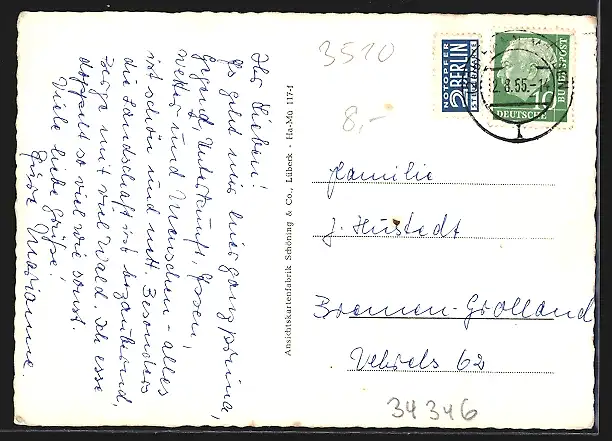 Ihr Lieben!
Es geht mir hier ganz prima,
Gegend, Unterkunft, Essen,
Wetter und Menschen - alles
ist schön und nett. Besonders
die Landschaft ist bezaubernd,
Berge mit viel Wald. Ich esse
doppelt so viel wie sonst.
Viele liebe Grüße!
Eure Marianne.
Ansichtskartenfabrik Schöning & Co., Lübeck - Ha-Mü 117-f
3510
8,-
NOTOPFER
2 BERLIN
STEUERMARKE
2.8.55.-1
10
DEUTSCHE
BUNDESPOST
Familie
J. Hustedt
Bremen-Grolland
62
34346